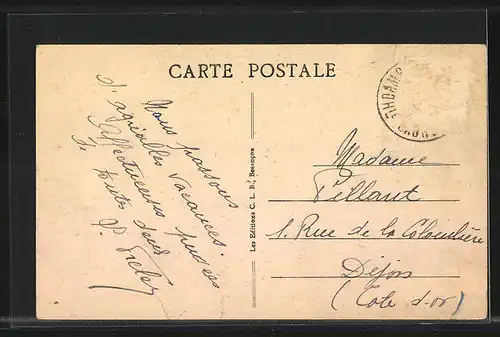 CARTE POSTALE
Nous passons
d'agréables vacances.
Affectueuses pensées
à toutes deux
P.
Les Editions C. L. B., Besançon
Madame
Pillaut
1. Rue de la Colombière
Dijon
(Cote d'or)